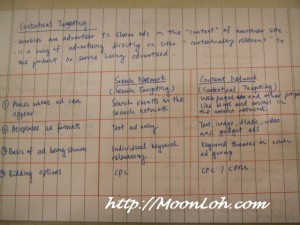 Contextual Targeting
- enables an advertiser to show ads in the "content" of another site.
- is a way of advertising directly on sites "contextually relevant" to
the product or service being advertised.
Search Network Content Network
(Search Targeting) (Contextual Targeting)
① Places where ad can Search results in the Web pages and other properties
appear search network like blogs and emails in
the content network
② Acceptable ad formats Text ad only Text, image, flash, video,
and gadget ads
③ Basis of ad being shown Individual keyword Keyword themes in each
relevancy ad group
④ Bidding options CPC CPC / CPM
http://MoonLoh.com